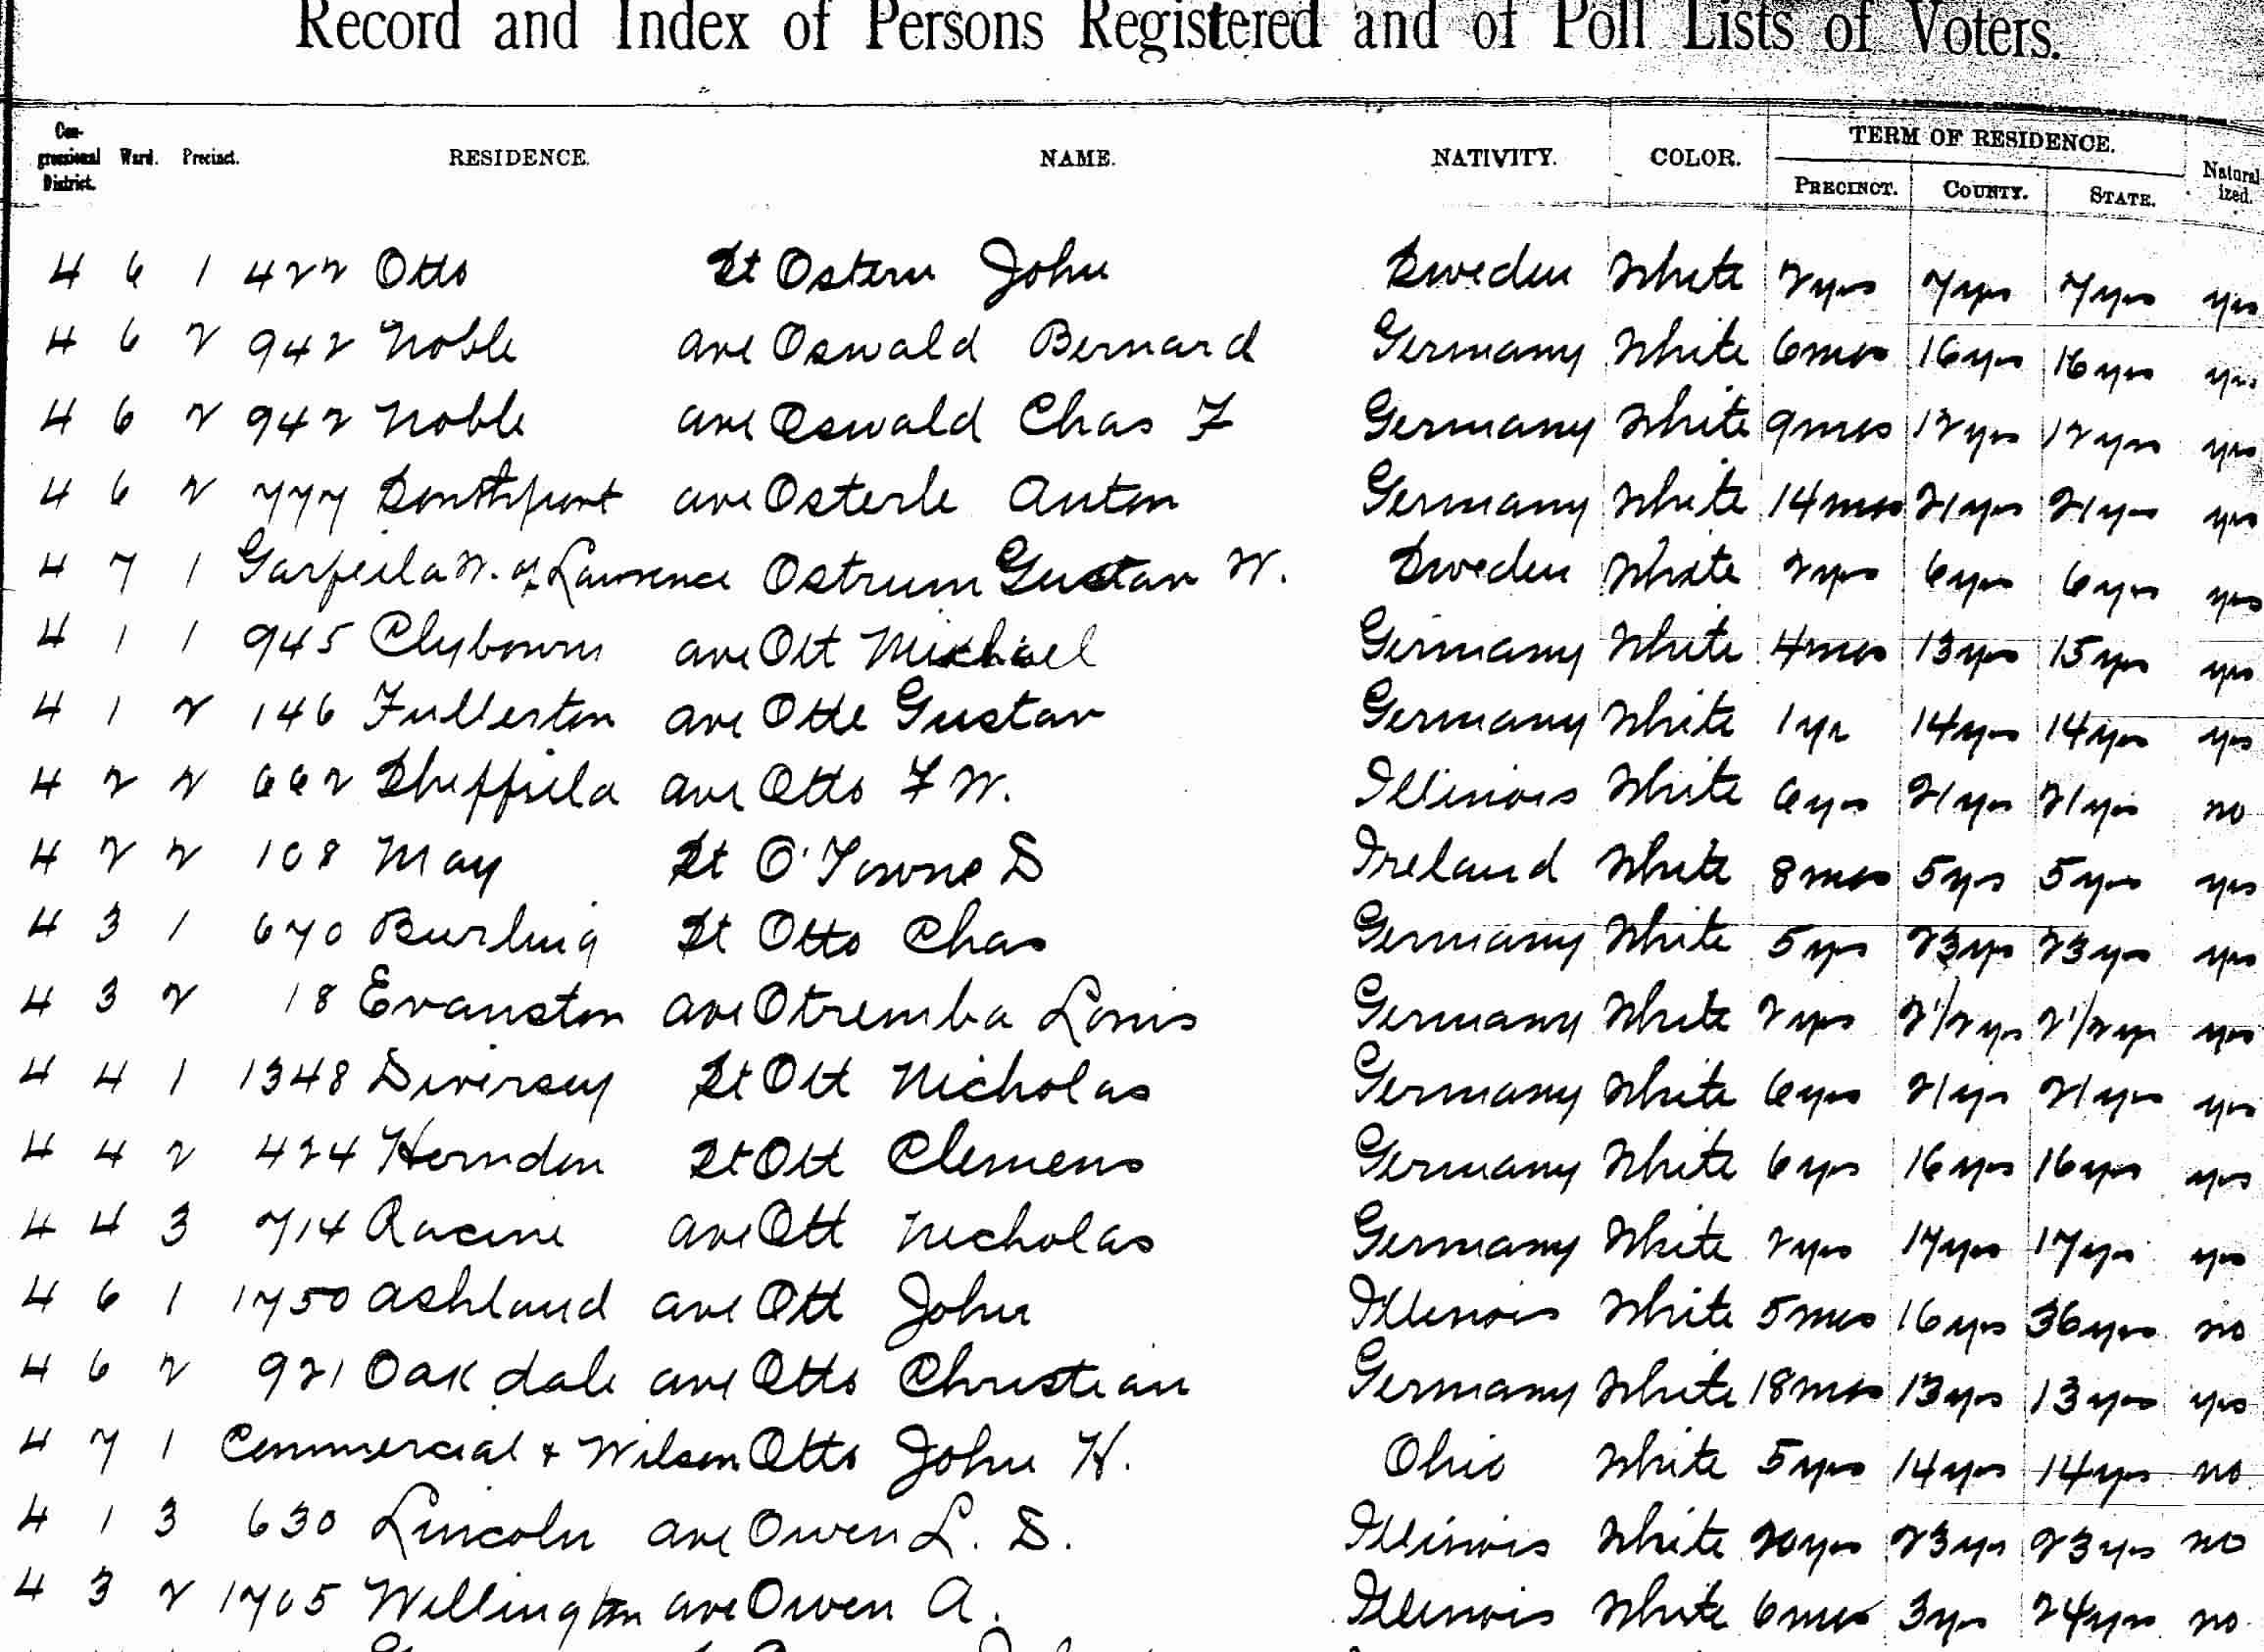 Record and Index of Persons Registered and of Poll Lists of Voters.
Con-gressional District. Ward. Precinct. RESIDENCE. NAME. NATIVITY. COLOR. TERM OF RESIDENCE. PRECINCT. COUNTY. STATE. Natural ized.
4 6 1 422 Otto St Ostern John Sweden White 2yrs 7yrs 7yrs yes
4 6 2 942 Noble ave Oswald Bernard Germany White 6mos 16yrs 16yrs yes
4 6 2 942 Noble ave Oswald Chas F Germany White 9mos 12yrs 12yrs yes
4 6 2 777 Southport ave Osterle Anton Germany White 14mos 21yrs 21yrs yes
4 7 1 Garfield W. of Lawrence Ostrum Gustav W. Sweden White 2yrs 6yrs 6yrs yes
4 1 1 945 Clybourn ave Ott Michael Germany White 4mos 13yrs 15yrs yes
4 1 2 146 Fullerton ave Otte Gustav Germany White 1yr 14yrs 14yrs yes
4 2 2 662 Sheffield ave Otto F W. Illinois White 6yrs 21yrs 21yrs no
4 2 2 108 May St O'Towne D Ireland White 8mos 5yrs 5yrs yes
4 3 1 670 Burling St Otto Chas Germany White 5yrs 23yrs 23yrs yes
4 3 2 18 Evanston ave Otremba Louis Germany White 2yrs 2 1/2 yrs 2 1/2 yrs yes
4 4 1 1348 Diversey St Ott Nicholas Germany White 6yrs 21yrs 21yrs yes
4 4 2 424 Herndon St Ott Clemens Germany White 6yrs 16yrs 16yrs yes
4 4 3 714 Racine ave Ott Nicholas Germany White 2yrs 17yrs 17yrs yes
4 6 1 1750 Ashland ave Ott John Illinois White 5mos 16yrs 36yrs no
4 6 2 921 Oakdale ave Otto Christian Germany White 18mos 13yrs 13yrs yes
4 7 1 Commercial & Wilson Otto John H. Ohio White 5yrs 14yrs 14yrs no
4 1 3 630 Lincoln ave Owen L. D. Illinois White 20yrs 23yrs 23yrs no
4 3 2 1705 Wellington ave Owen A. Illinois White 6mos 3yrs 24yrs no